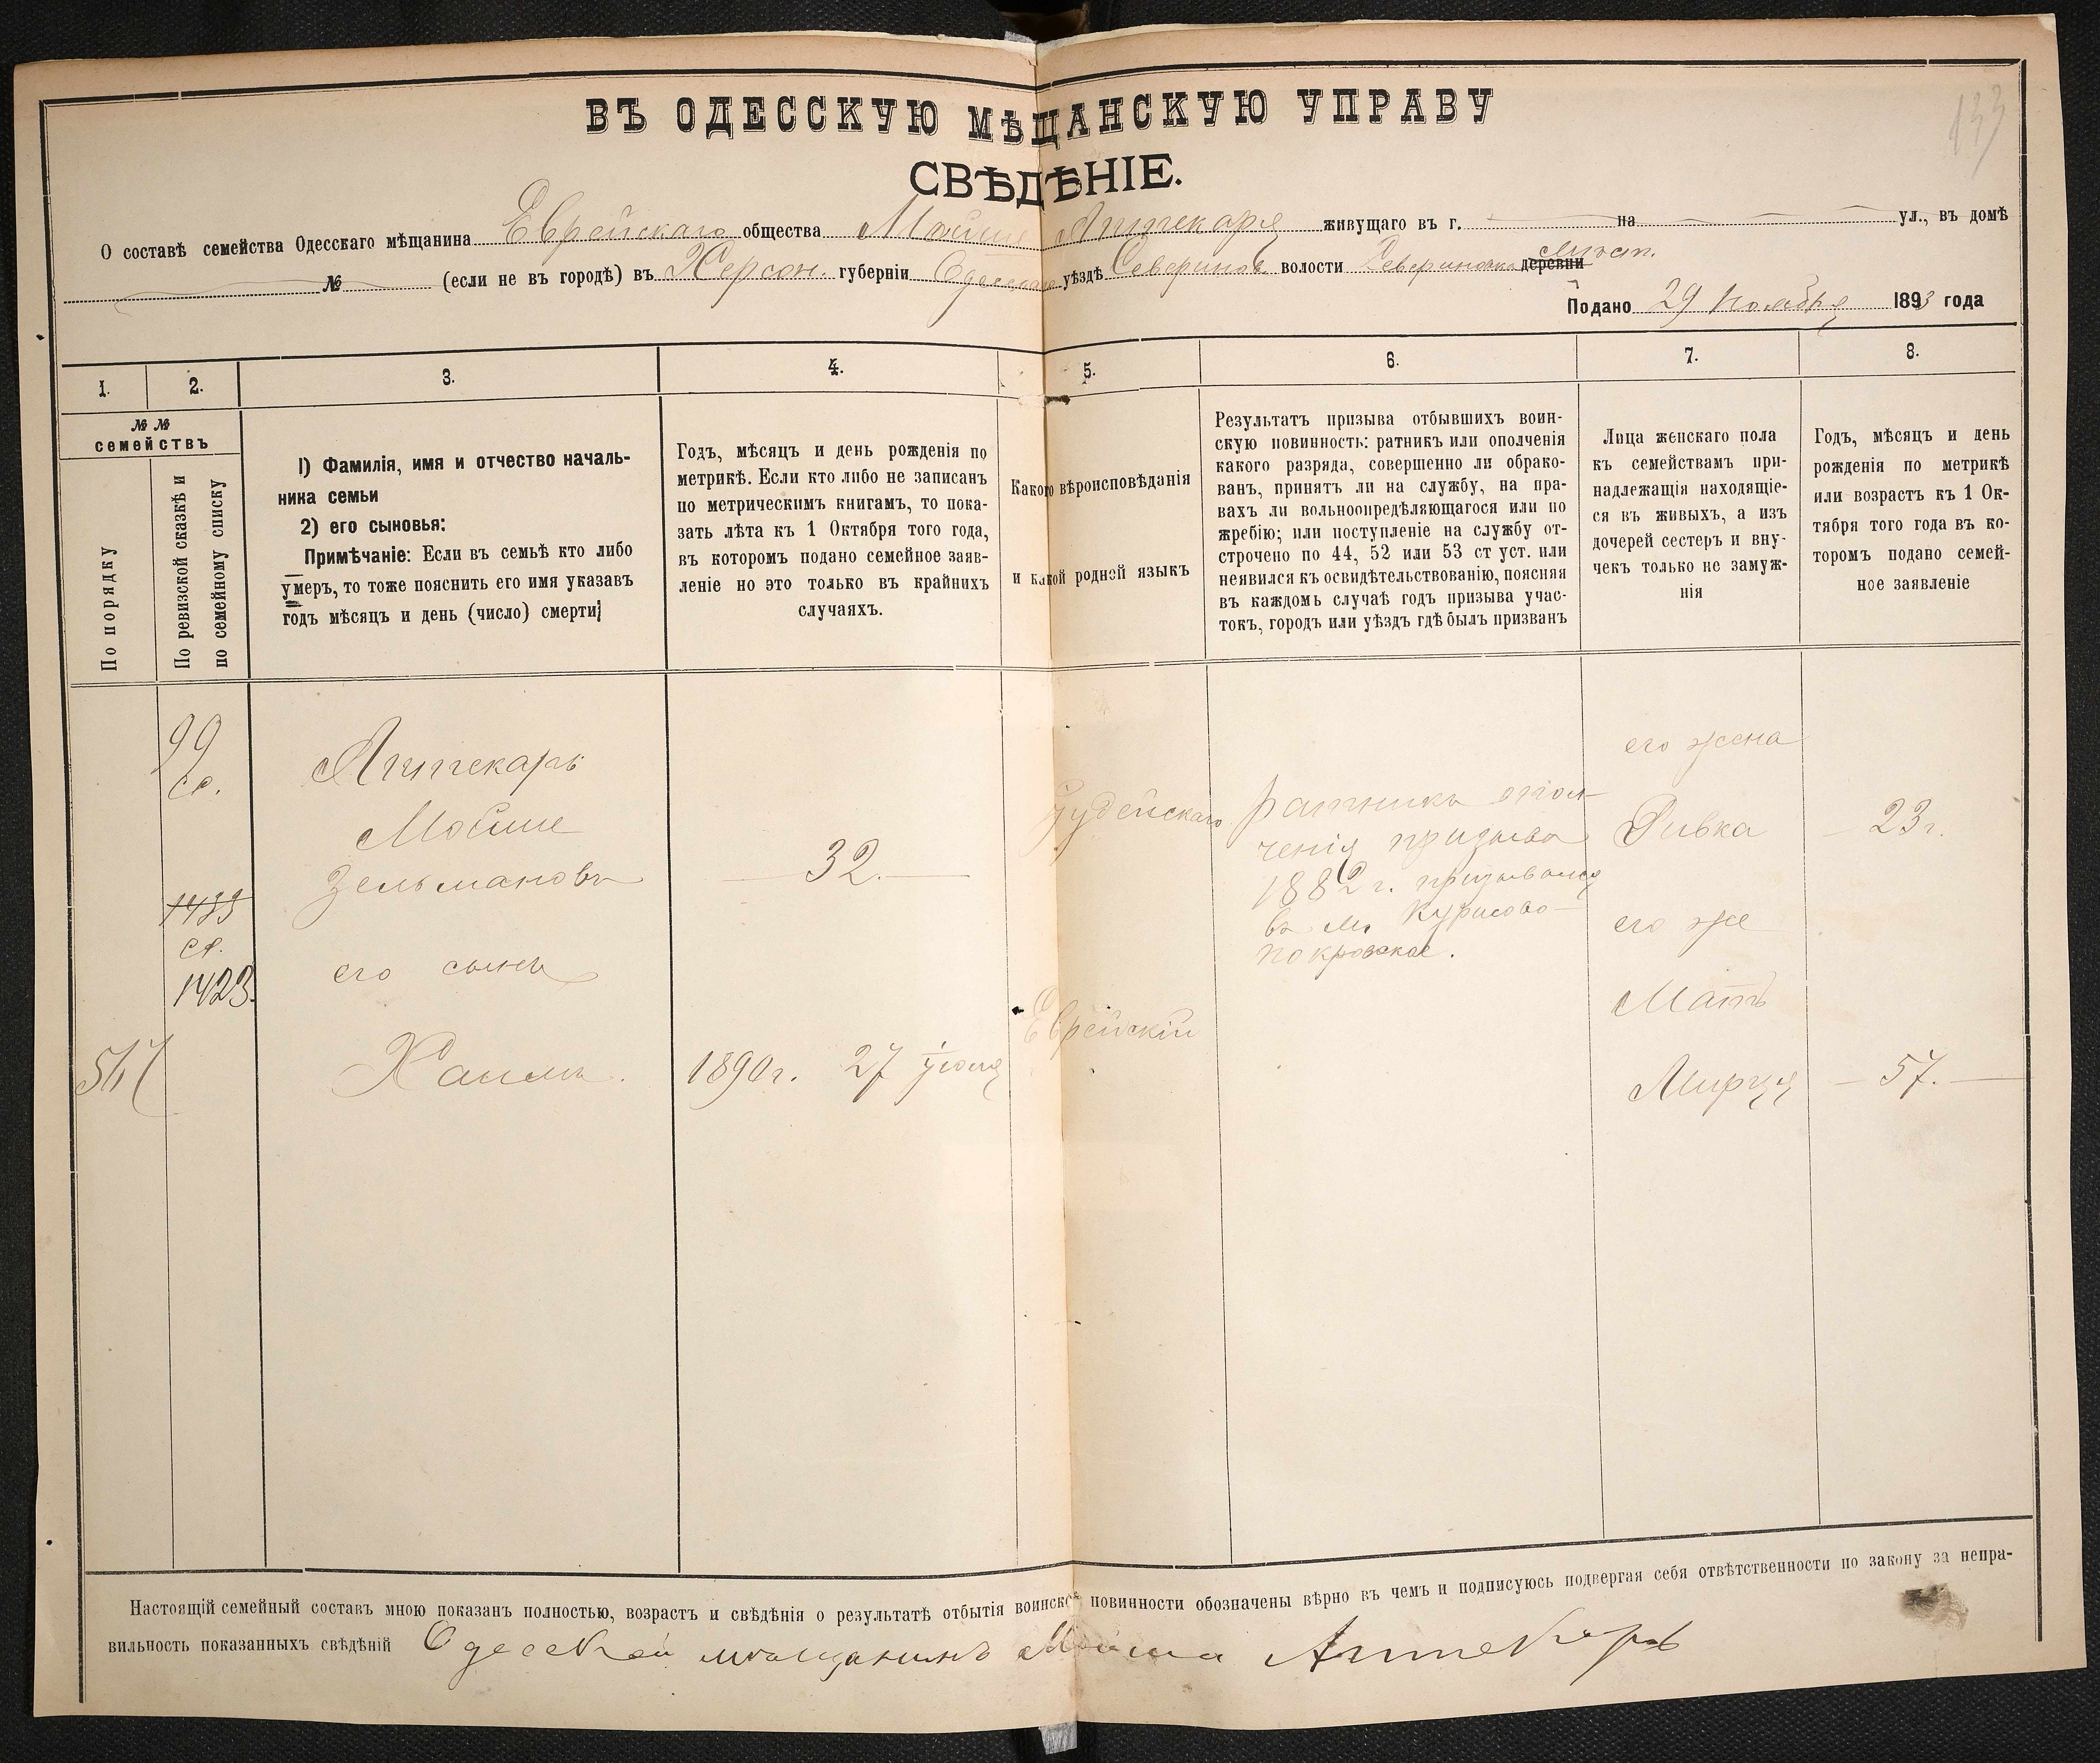 133
ВЪ ОДЕССКУЮ МѢЩАНСКУЮ УПРАВУ
СВѢДѢНІЕ.
О составѣ семейства Одесскаго мѣщанина Еврейскаго общества Мойше Аптекаря живущаго въ г. на ул., въ домѣ
№ (если не въ городѣ) въ Херсон. губерніи Одесскаго уѣздѣ Северинов волости Севериновка деревни мѣст.
Подано 29 Ноября 1893 года
1. 2. 3. 4. 5. 6. 7. 8.
№ №
семействъ
По порядку
По ревизской сказкѣ и
по семейному списку
1) Фамилія, имя и отчество началь-
ника семьи
2) его сыновья:
Примѣчаніе: Если въ семьѣ кто либо
умеръ, то тоже пояснить его имя указавъ
годъ мѣсяцъ и день (число) смерти;
Годъ, мѣсяцъ и день рожденія по
метрикѣ. Если кто либо не записанъ
по метрическимъ книгамъ, то пока-
зать лѣта къ 1 Октября того года,
въ которомъ подано семейное заяв-
леніе но это только въ крайнихъ
случаяхъ.
Какого вѣроисповѣданія
и какой родной языкъ
Результатъ призыва отбывшихъ воин-
скую повинность: ратникъ или ополченія
какого разряда, совершенно ли обрако-
ванъ, принятъ ли на службу, на пра-
вахъ ли вольноопредѣляющагося или по
жребію; или поступленіе на службу от-
строчено по 44, 52 или 53 ст уст. или
неявился къ освидѣтельствованію, поясняя
въ каждомъ случаѣ годъ призыва учас-
токъ, городъ или уѣздъ гдѣ былъ призванъ
Лица женскаго пола
къ семействамъ при-
надлежащія находящіе-
ся въ живыхъ, а изъ
дочерей сестеръ и вну-
чекъ только не замуж-
нія
Годъ, мѣсяцъ и день
рожденія по метрикѣ
или возрастъ къ 1 Ок-
тября того года въ ко-
торомъ подано семей-
ное заявленіе
99
ср.
1423
Аптекарь
Мойше
Зельмановъ
его сынъ
Хаимъ.
32.
1890 г. 27 іюня
Іудейскаго
Еврейскій
ратникъ опол-
ченія призыва
1882 г. призывался
въ м. Курисово-
покровское.
его жена
Ривка
23 г.
его же
Мать
57.
Настоящій семейный составъ мною показанъ полностью, возрастъ и свѣдѣнія о результатѣ отбытія воинской повинности обозначены вѣрно въ чемъ и подписуюсь подвергая себя отвѣтственности по закону за непра-
вильность показанныхъ свѣдѣній Одесскай мещанинъ Мойша Аптекарь